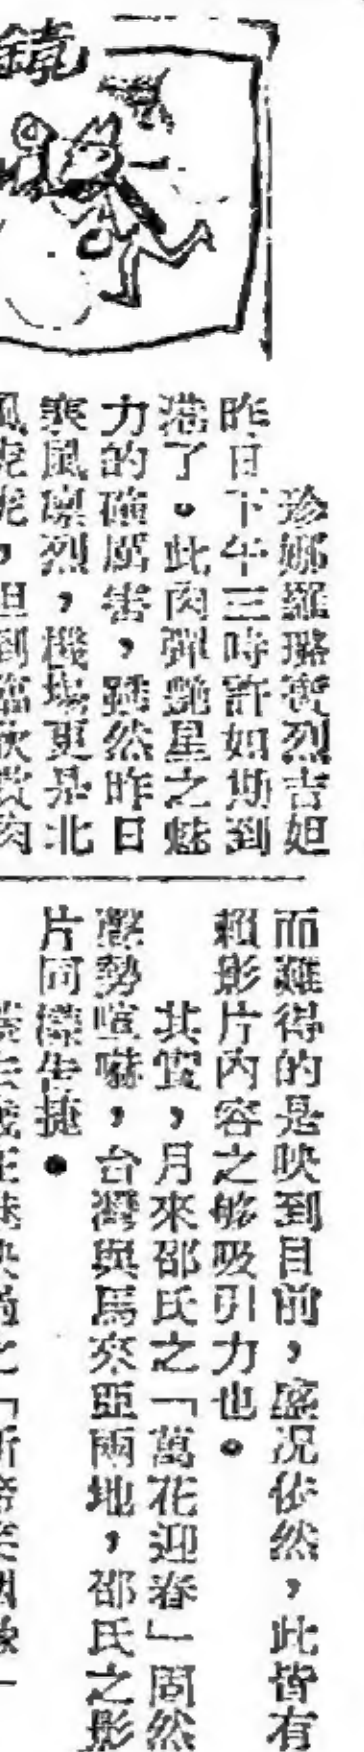 鏡
珍娜羅璐寶烈吉妲
昨日下午三時許如期到
港了。此肉彈艷星之魅
力的確厲害，雖然昨日
寒風凜烈，機場更是北
而難得的是映到目前，盛况依然，此皆有
賴影片內容之够吸引力也。
其實，月來邵氏之「萬花迎春」固然
聲勢喧嚇，台灣與馬來亞兩地，邵氏之影
片同樣告捷。